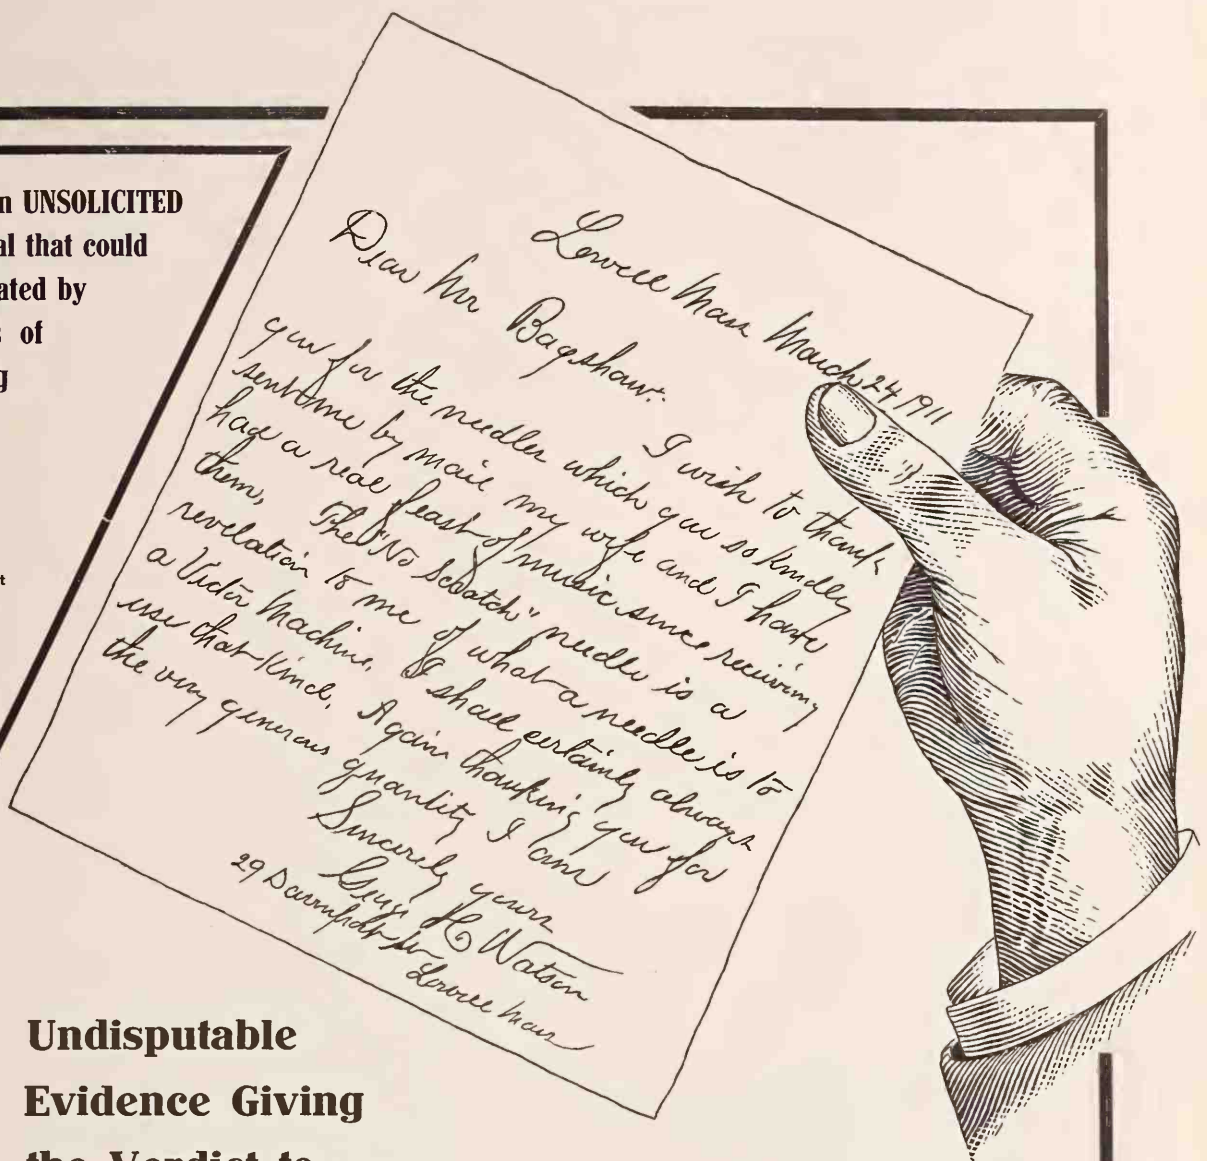 n UNSOLICITED
al that could
ated by
s of
g
t
Lowell Mass March 24, 1911
Dear Mr Bagshaw:
I wish to thank
you for the needles which you so kindly
sent me by mail my wife and I have
had a real feast of music since receiving
them, The "No Scratch" needle is a
revelation to me of what a needle is to
a Victor Machine, I shall certainly always
use that kind, Again thanking you for
the very generous quantity I am
Sincerely yours
H Watson
29
Lowell Mass
Undisputable
Evidence Giving
the Verdict to